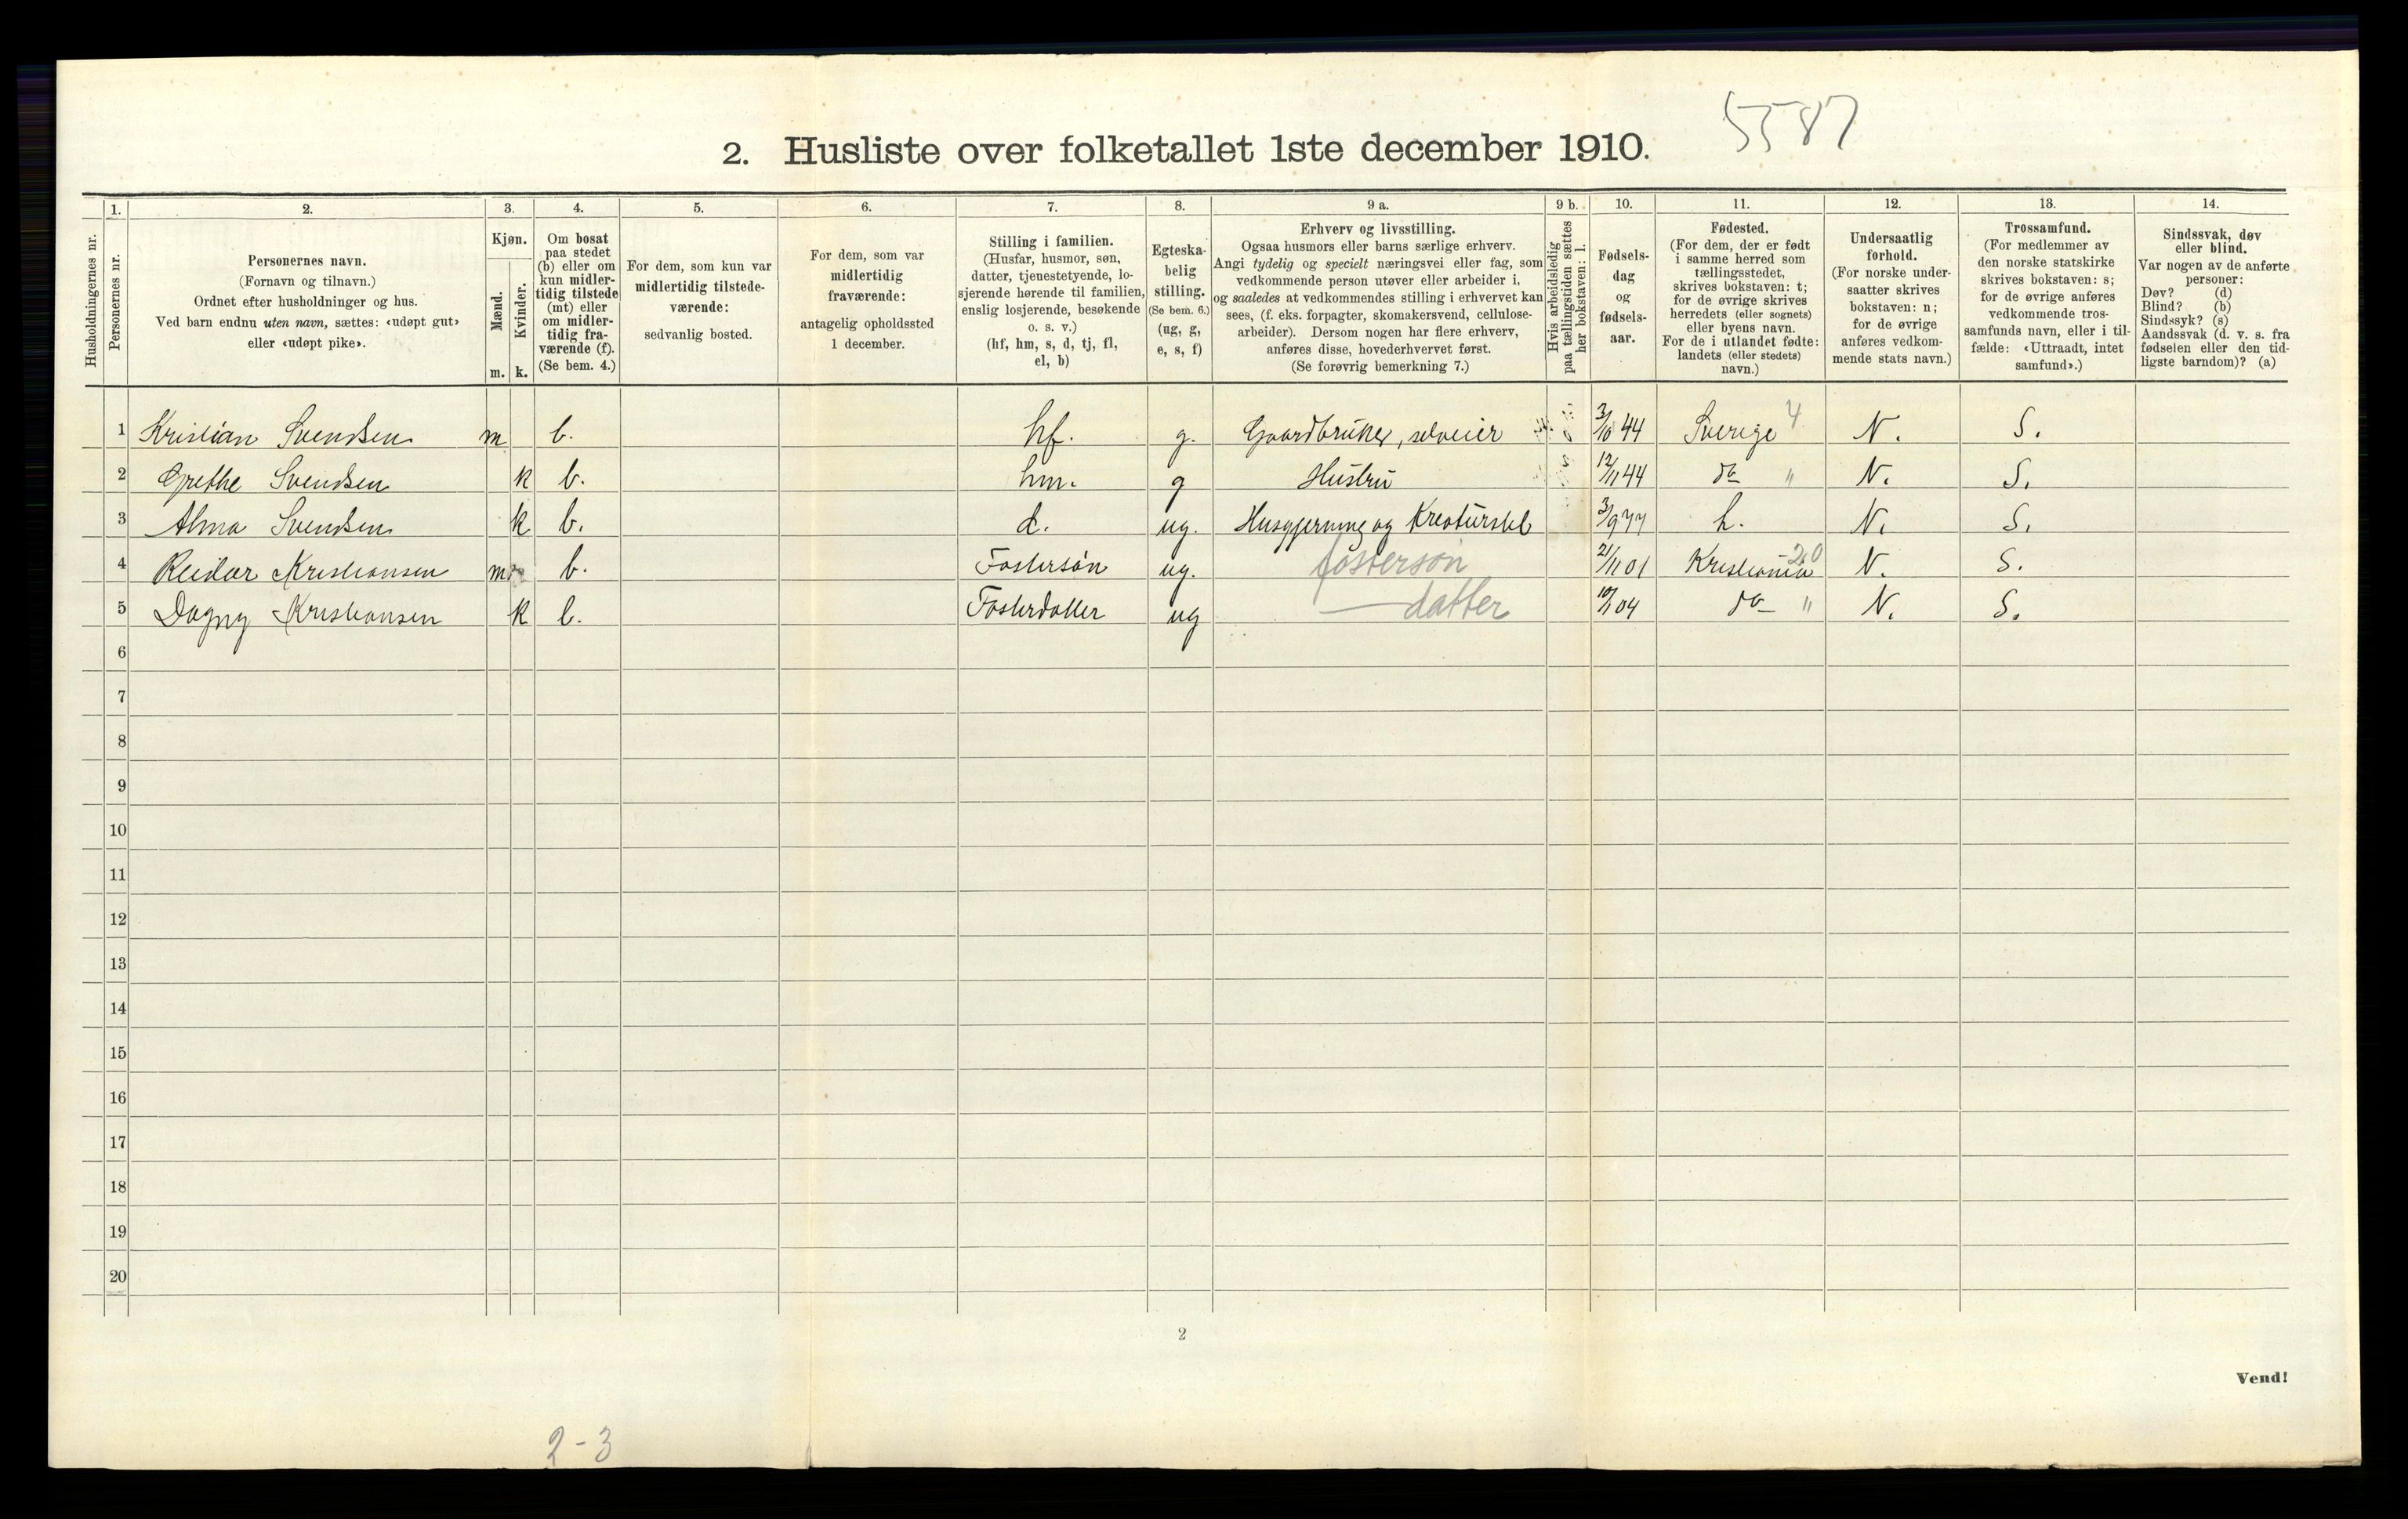 5587
2. Husliste over folketallet 1ste december 1910.
Husholdningernes nr.
1.
Personernes nr.
2.
Personernes navn.
(Fornavn og tilnavn.)
Ordnet efter husholdninger og hus.
Ved barn endnu uten navn, sættes: «udøpt gut»
eller «udøpt pike».
3.
Kjøn.
Mænd.
Kvinder.
m. k.
4.
Om bosat
paa stedet
(b) eller om
kun midler-
tidig tilstede
(mt) eller
om midler-
tidig fra-
værende (f).
(Se bem. 4.)
5.
For dem, som kun var
midlertidig tilstede-
værende:
sedvanlig bosted.
6.
For dem, som var
midlertidig
fraværende:
antagelig opholdssted
1 december.
7.
Stilling i familien.
(Husfar, husmor, søn,
datter, tjenestetyende, lo-
sjerende hørende til familien,
enslig losjerende, besøkende
o. s. v.)
(hf, hm, s, d, tj, fl,
el, b)
8.
Egteska-
belig
stilling.
(Se bem. 6.)
(ug, g,
e, s, f)
9 a.
Erhverv og livsstilling.
Ogsaa husmors eller barns særlige erhverv.
Angi tydelig og specielt næringsvei eller fag, som
vedkommende person utøver eller arbeider i,
og saaledes at vedkommendes stilling i erhvervet kan
sees, (f. eks. forpagter, skomakersvend, cellulose-
arbeider). Dersom nogen har flere erhverv,
anføres disse, hovederhvervet først.
(Se forøvrig bemerkning 7.)
9 b.
Hvis arbeidsledig
paa tællingstiden sættes
her bokstaven: l.
10.
Fødsels-
dag
og
fødsels-
aar.
11.
Fødested.
(For dem, der er født
i samme herred som
tællingsstedet,
skrives bokstaven: t;
for de øvrige skrives
herredets (eller sognets)
eller byens navn.
For de i utlandet fødte:
landets (eller stedets)
navn.)
12.
Undersaatlig
forhold.
(For norske under-
saatter skrives
bokstaven: n;
for de øvrige
anføres vedkom-
mende stats navn.)
13.
Trossamfund.
(For medlemmer av
den norske statskirke
skrives bokstaven: s;
for de øvrige anføres
vedkommende tros-
samfunds navn, eller i til-
fælde: «Uttraadt, intet
samfund».)
14.
Sindssvak, døv
eller blind.
Var nogen av de anførte
personer:
Døv? (d)
Blind? (b)
Sindssyk? (s)
Aandssvak (d. v. s. fra
fødselen eller den tid-
ligste barndom)? (a)
1 Kristian Svendsen m b. hf. g. Gaardbruker, selveier 3/10 44 Sverige 4 N. S.
2 Grethe Svendsen k b. hm. g Hustru 12/11 44 do " N. S.
3 Alma Svendsen k b. d. ug. Husgjerning og Kreaturstel 3/9 77 N. S.
4 Reidar Kristiansen m b. Fostersøn ug. fosterson 21/11 01 Kristiania 20 N. S.
5 Dagny Kristiansen k b. Fosterdatter ug — datter 10/1 04 do " N. S.
6
7
8
9
10
11
12
13
14
15
16
17
18
19
20
2
Vend!
2-3